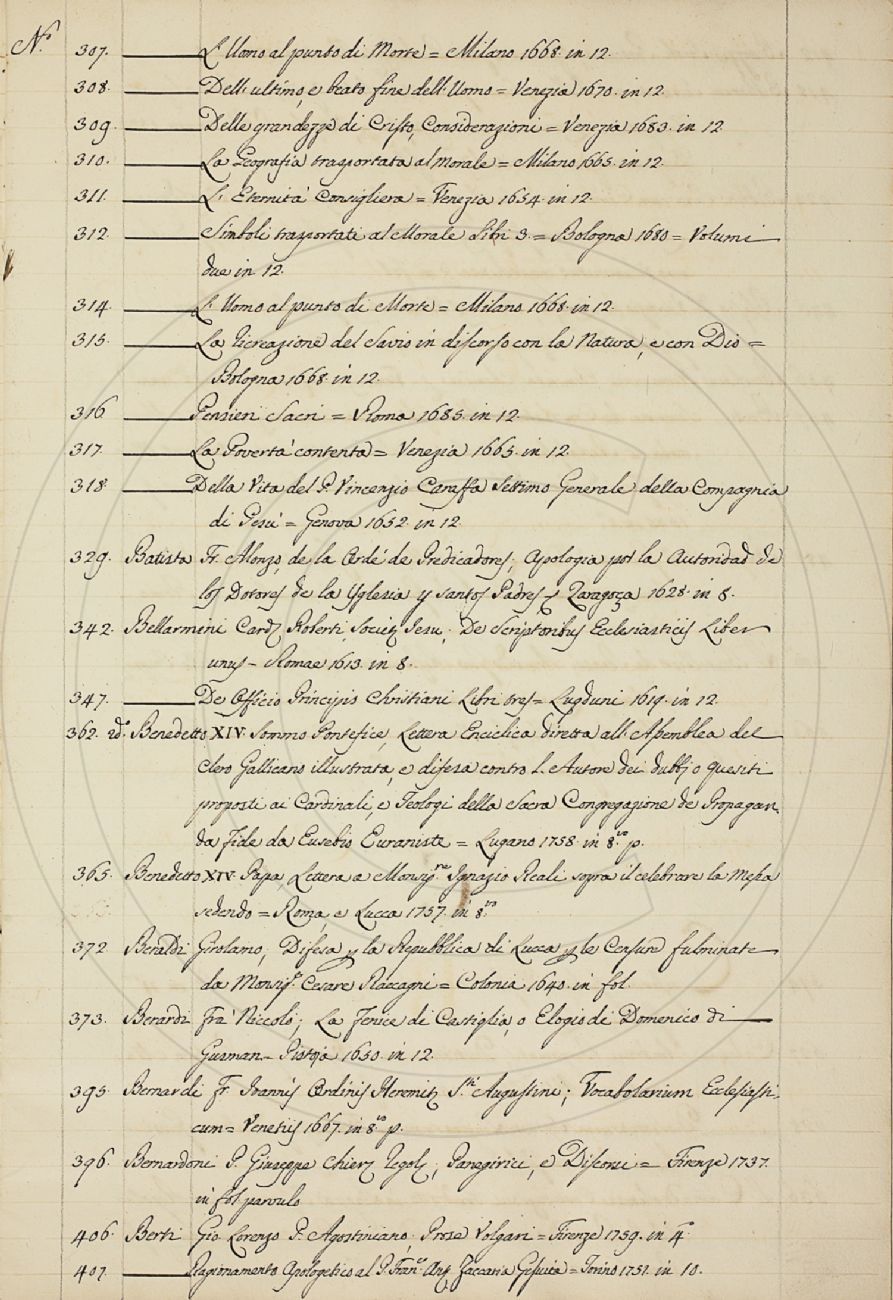 N.º 307. ——— L'Uomo al punto di Morte = Milano 1668. in 12.
308. ——— Dell'ultimo, e beato fine dell'Uomo = Venezia 1670. in 12.
309. ——— Delle grandezze di Cristo, Considerazioni = Venezia 1683. in 12.
310. ——— La Geografia trasportata al morale = Milano 1665. in 12.
311. ——— L'Eternita' Consigliera = Venezia 1654. in 12.
312. ——— Simboli trasportati al Morale Libri 3. = Bologna 1680 = Volumi
due in 12.
314. ——— L'Uomo al punto di Morte = Milano 1668. in 12.
315. ——— La Ricreazione del Savio in discorso con la Natura, e con Dio =
Bologna 1668. in 12.
316. ——— Pensieri Sacri = Roma 1685. in 12.
317. ——— La Poverta' contenta = Venezia 1665. in 12.
318. ——— Della Vita del P. Vincenzio Caraffa Settimo Generale della Compagnia
di Gesu' = Genova 1652. in 12.
329. Batista Fr. Alonzo, de la Ordē de Predicadores; Apologia por la Autoridad de
los Dotores de la Yglesia y santos Padres = Zaragoça 1628. in 8.
342. Bellarmini Card. Roberti, Societ. Iesu; De Scriptoribus Ecclesiasticis Liber
unus - Romae 1613. in 8.
347. ——— De Officio Principis Christiani Libri tres = Lugduni 1619. in 12.
362. 2.º Benedetto XIV. Sommo Pontefice, Lettera Enciclica diretta all'Assemblea del
Clero Gallicano illustrata, e difesa contro l'Autore dei dubbj o quesiti
proposti ai Cardinali, e Teologi della Sacra Congregazione de Propagan-
da fide da Eusebio Euraniste = Lugano 1758. in 8.vo p.
365. Benedetto XIV. Papa, Lettera a Monsig.re Ignazio Reali sopra il celebrare la Messa
sedendo = Roma, e Lucca 1757. in 8.vo
372. Beraldi Girolamo; Difesa p la Repubblica di Lucca p le Censure fulminate
da Monsig. Cesare Raccagni = Colonia 1640. in fol.
373. Berardi Fra' Niccolò; La Fenice di Castiglia, o Elogio di Domenico di
Gusman - Pistoja 1650. in 12.
395. Bernardi Fr. Ioannis Ordinis Heremit. S.ti Augustini; Vocabolarium Ecclesiasti-
cum = Venetiis 1667. in 8.vo p.
396. Bernardoni P. Giuseppe Chier. Regol.; Panegirici, e Discorsi = Firenze 1737.
in fol. parvulo
406. Berti Gio. Lorenzo P. Agostiniano, Prose Volgari = Firenze 1759. in 4.º
407. ——— Ragionamento Apologetico al P. Fran.co Ant. Zaccaria Gesuita = Torino 1751. in 10.